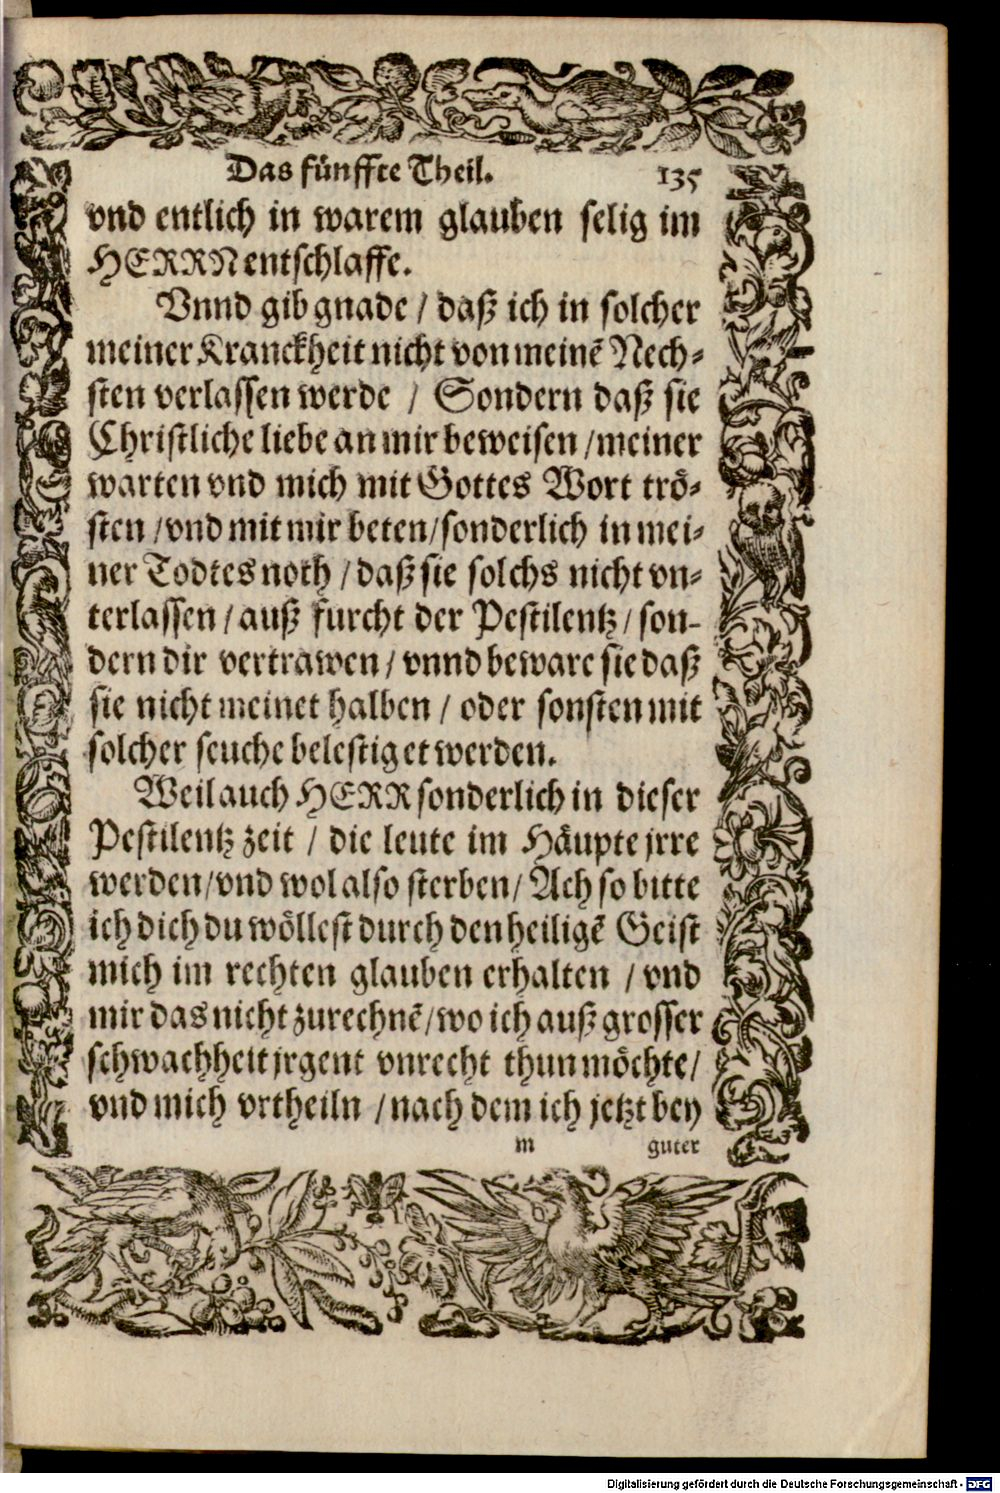 Das fünffte Theil. 135
vnd entlich in warem glauben selig im
HERRN entschlaffe.
Vnnd gib gnade / daß ich in solcher
meiner Kranckheit nicht von meinē Nech-
sten verlassen werde / Sondern daß sie
Christliche liebe an mir beweisen / meiner
warten vnd mich mit Gottes Wort trö-
sten / vnd mit mir beten / sonderlich in mei-
ner Todtes noth / daß sie solchs nicht vn-
terlassen / auß furcht der Pestilentz / son-
dern dir vertrawen / vnnd beware sie daß
sie nicht meinet halben / oder sonsten mit
solcher seuche belestiget werden.
Weil auch HERR sonderlich in dieser
Pestilentz zeit / die leute im Häupte jrre
werden / vnd wol also sterben / Ach so bitte
ich dich du wöllest durch den heiligē Geist
mich im rechten glauben erhalten / vnd
mir das nicht zurechnē / wo ich auß grosser
schwachheit jrgent vnrecht thun möchte /
vnd mich vrtheiln / nach dem ich jetzt bey
m guter
Digitalisierung gefördert durch die Deutsche Forschungsgemeinschaft - DFG